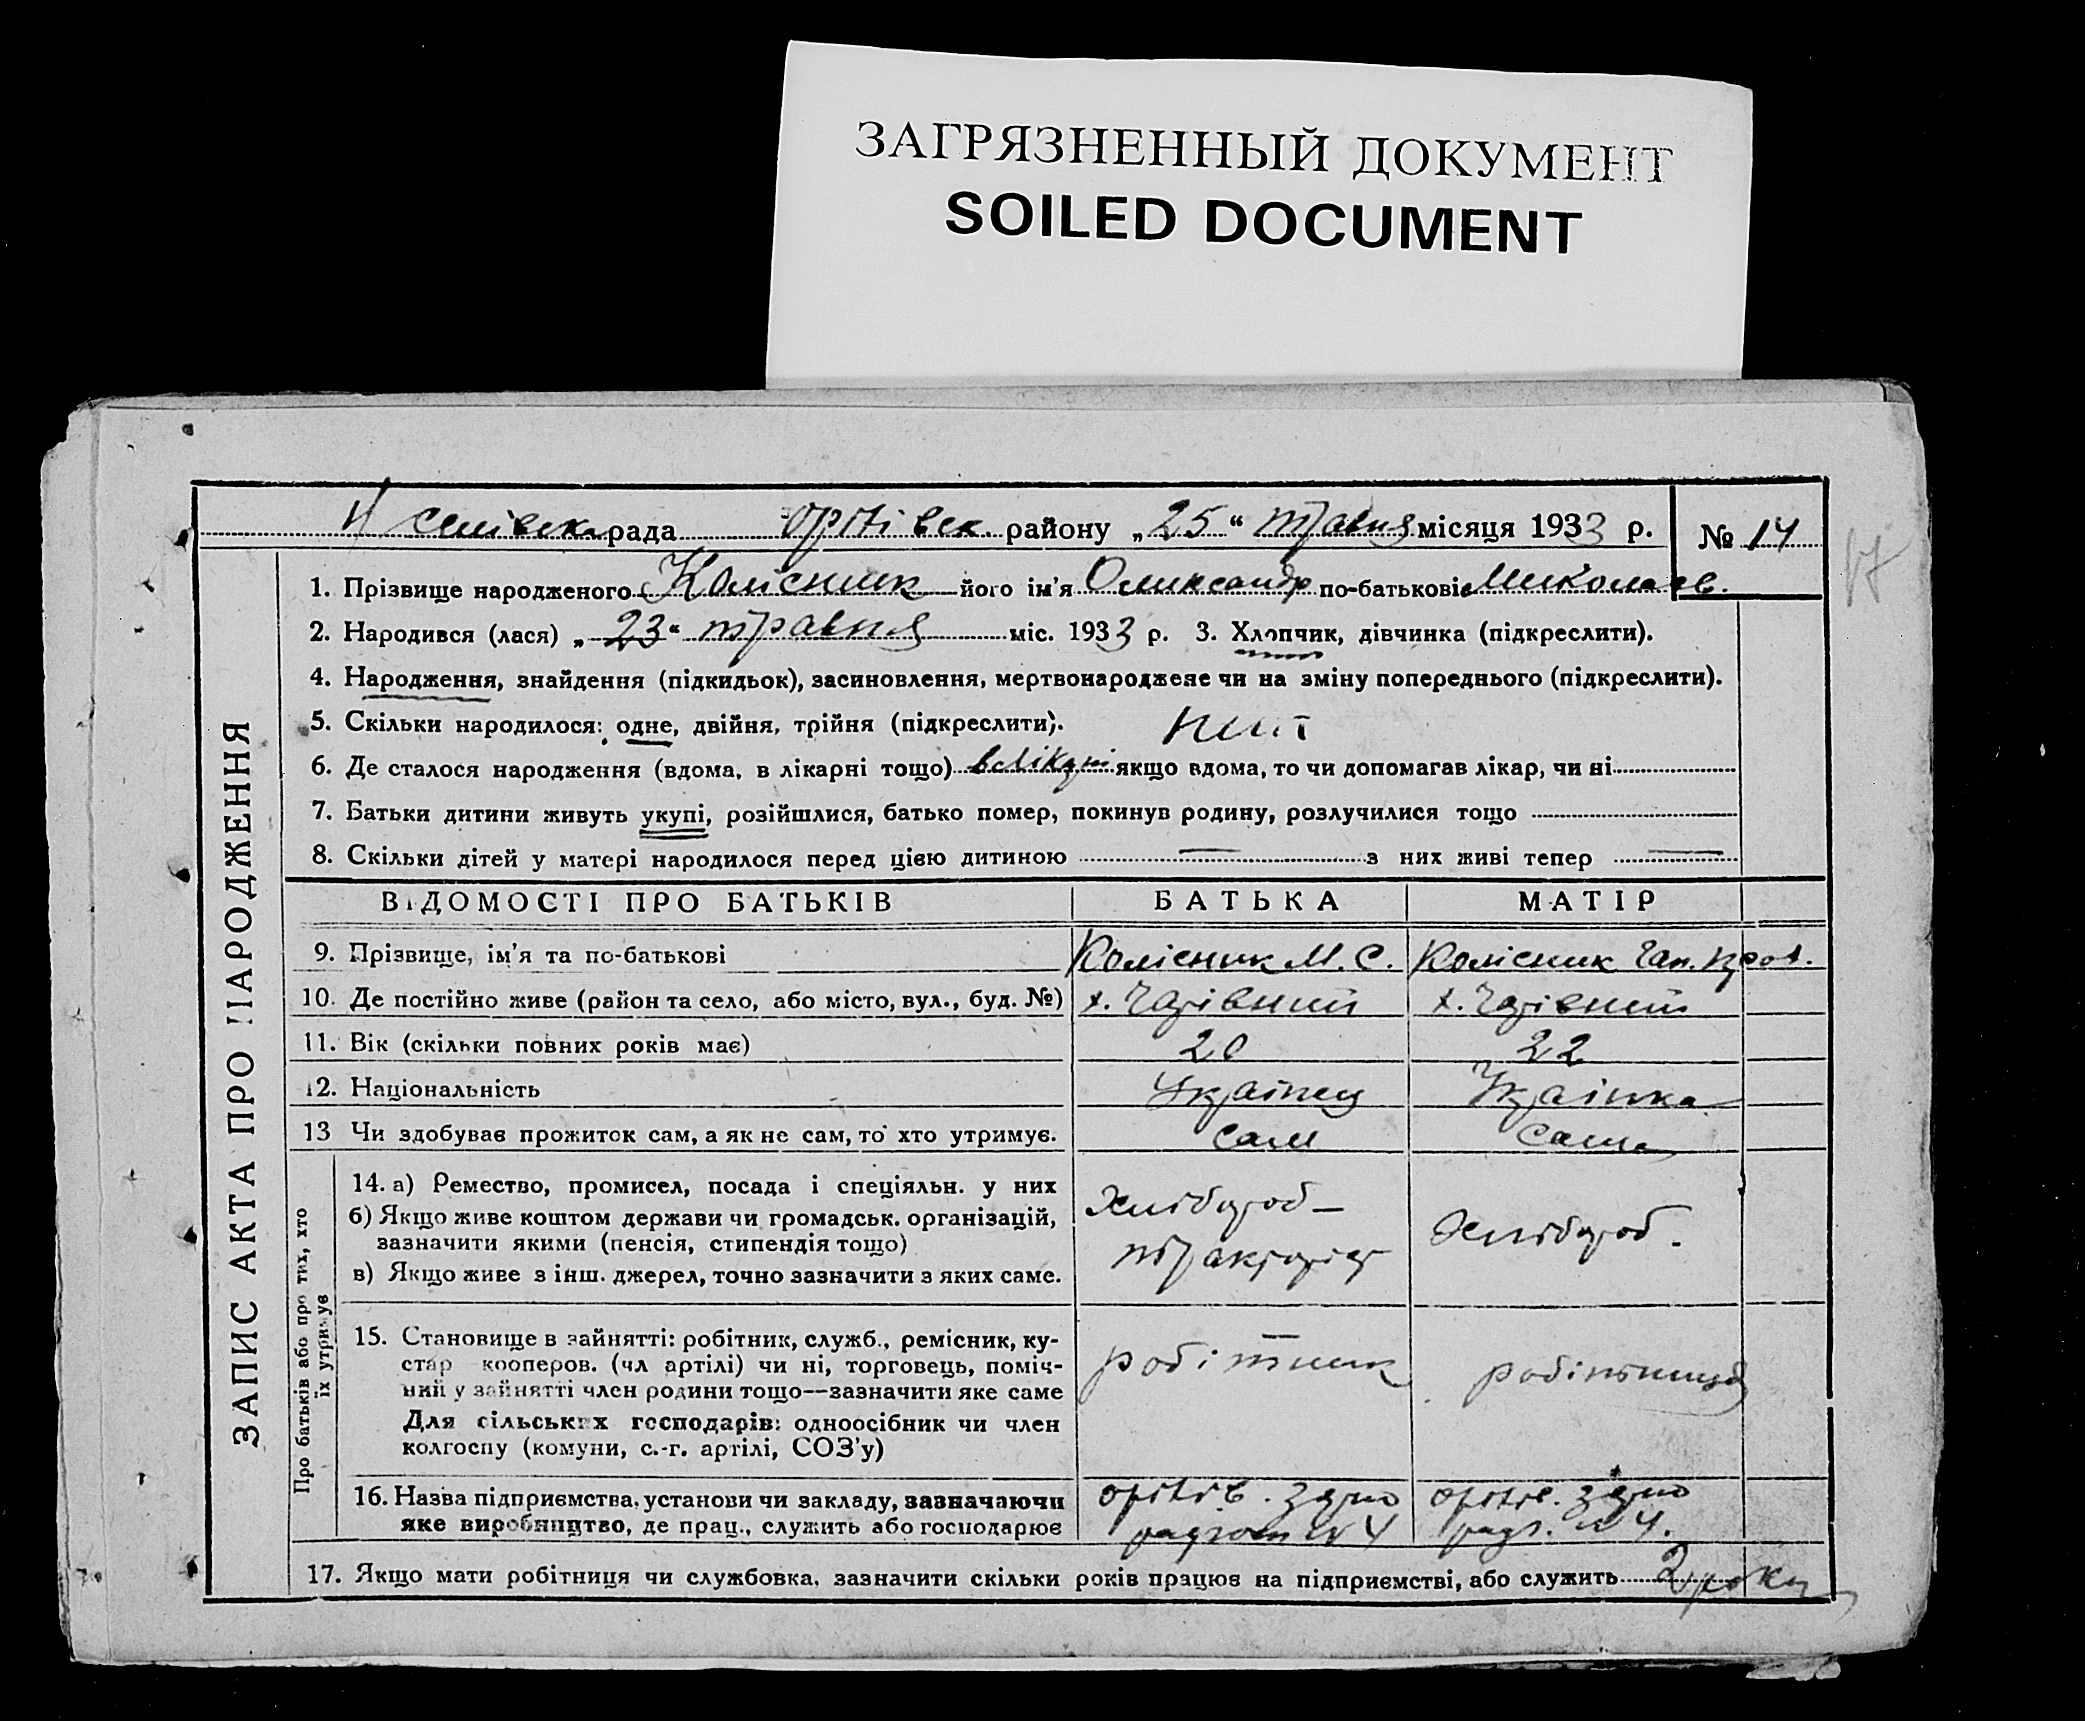 ЗАГРЯЗНЕННЫЙ ДОКУМЕНТ
SOILED DOCUMENT
рада орітівск. району „25“ травня місяця 1933 р. № 14
17
ЗАПИС АКТА ПРО НАРОДЖЕННЯ
1. Прізвище народженого Колісник його ім'я Олександр по-батькові Миколаєв.
2. Народився (лася) „23“ травня міс. 1933 р. 3. Хлопчик, дівчинка (підкреслити).
4. Народження, знайдення (підкидьок), засиновлення, мертвонароджене чи на зміну попереднього (підкреслити).
5. Скільки народилося: одне, двійня, трійня (підкреслити).
6. Де сталося народження (вдома, в лікарні тощо) якщо вдома, то чи допомагав лікар, чи ні
7. Батьки дитини живуть укупі, розійшлися, батько помер, покинув родину, розлучилися тощо
8. Скільки дітей у матері народилося перед цією дитиною — з них живі тепер —
ВІДОМОСТІ ПРО БАТЬКІВ БАТЬКА МАТІР
9. Прізвище, ім'я та по-батькові Колісник М. С. Колісник
10. Де постійно живе (район та село, або місто, вул., буд. №) х. Чарівний х. Чарівний
11. Вік (скільки повних років має) 20 22
12. Національність Українец Українка
13 Чи здобуває прожиток сам, а як не сам, то хто утримує. сам сама
Про батьків або про тих, хто
їх утримує
14. а) Ремество, промисел, посада і спеціяльн. у них
б) Якщо живе коштом держави чи громадськ. організацій,
зазначити якими (пенсія, стипендія тощо)
в) Якщо живе з інш. джерел, точно зазначити з яких саме.
Хлібороб –
тракторіст
Хлібороб.
15. Становище в зайнятті: робітник, служб., ремісник, ку-
стар кооперов. (чл артілі) чи ні, торговець, поміч-
ний у зайнятті член родини тощо—зазначити яке саме
Для сільських господарів: одноосібник чи член
колгоспу (комуни, с.-г. артілі, СОЗ'у)
робітник
робітниця
16. Назва підприємства, установи чи закладу, зазначаючи
яке виробництво, де прац., служить або господарює
орітів. зерно
радгосп № 4
орітів. зерно
радг. № 4.
17. Якщо мати робітниця чи службовка, зазначити скільки років працює на підприємстві, або служить 2 роки